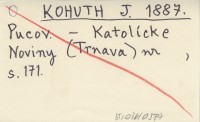 KOHUTH J. 1887.
Pucov. - Katolícke
Noviny (Trnava) nr ,
s. 171.